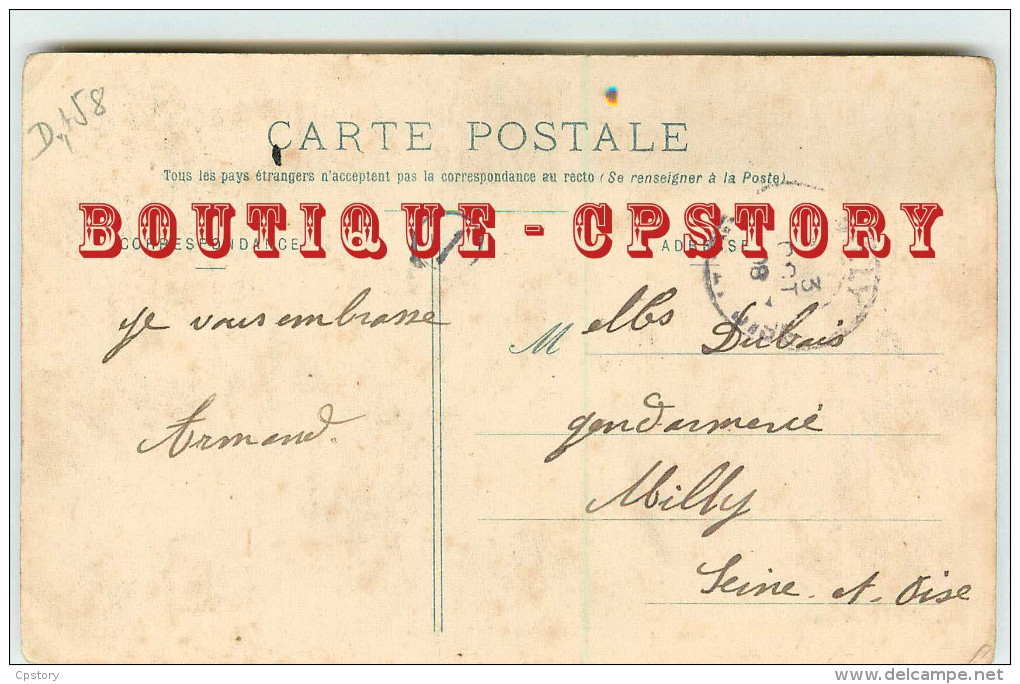 Dpt 58
CARTE POSTALE
Tous les pays étrangers n'acceptent pas la correspondance au recto (Se renseigner à la Poste)
BOUTIQUE - CPSTORY
CORRESPONDANCE
ADRESSE
3
OCT
08
Je vous embrasse
Armand.
M elles Dubois
gendarmerie
Milly
Seine-et-Oise
Cpstory
delcampe.net